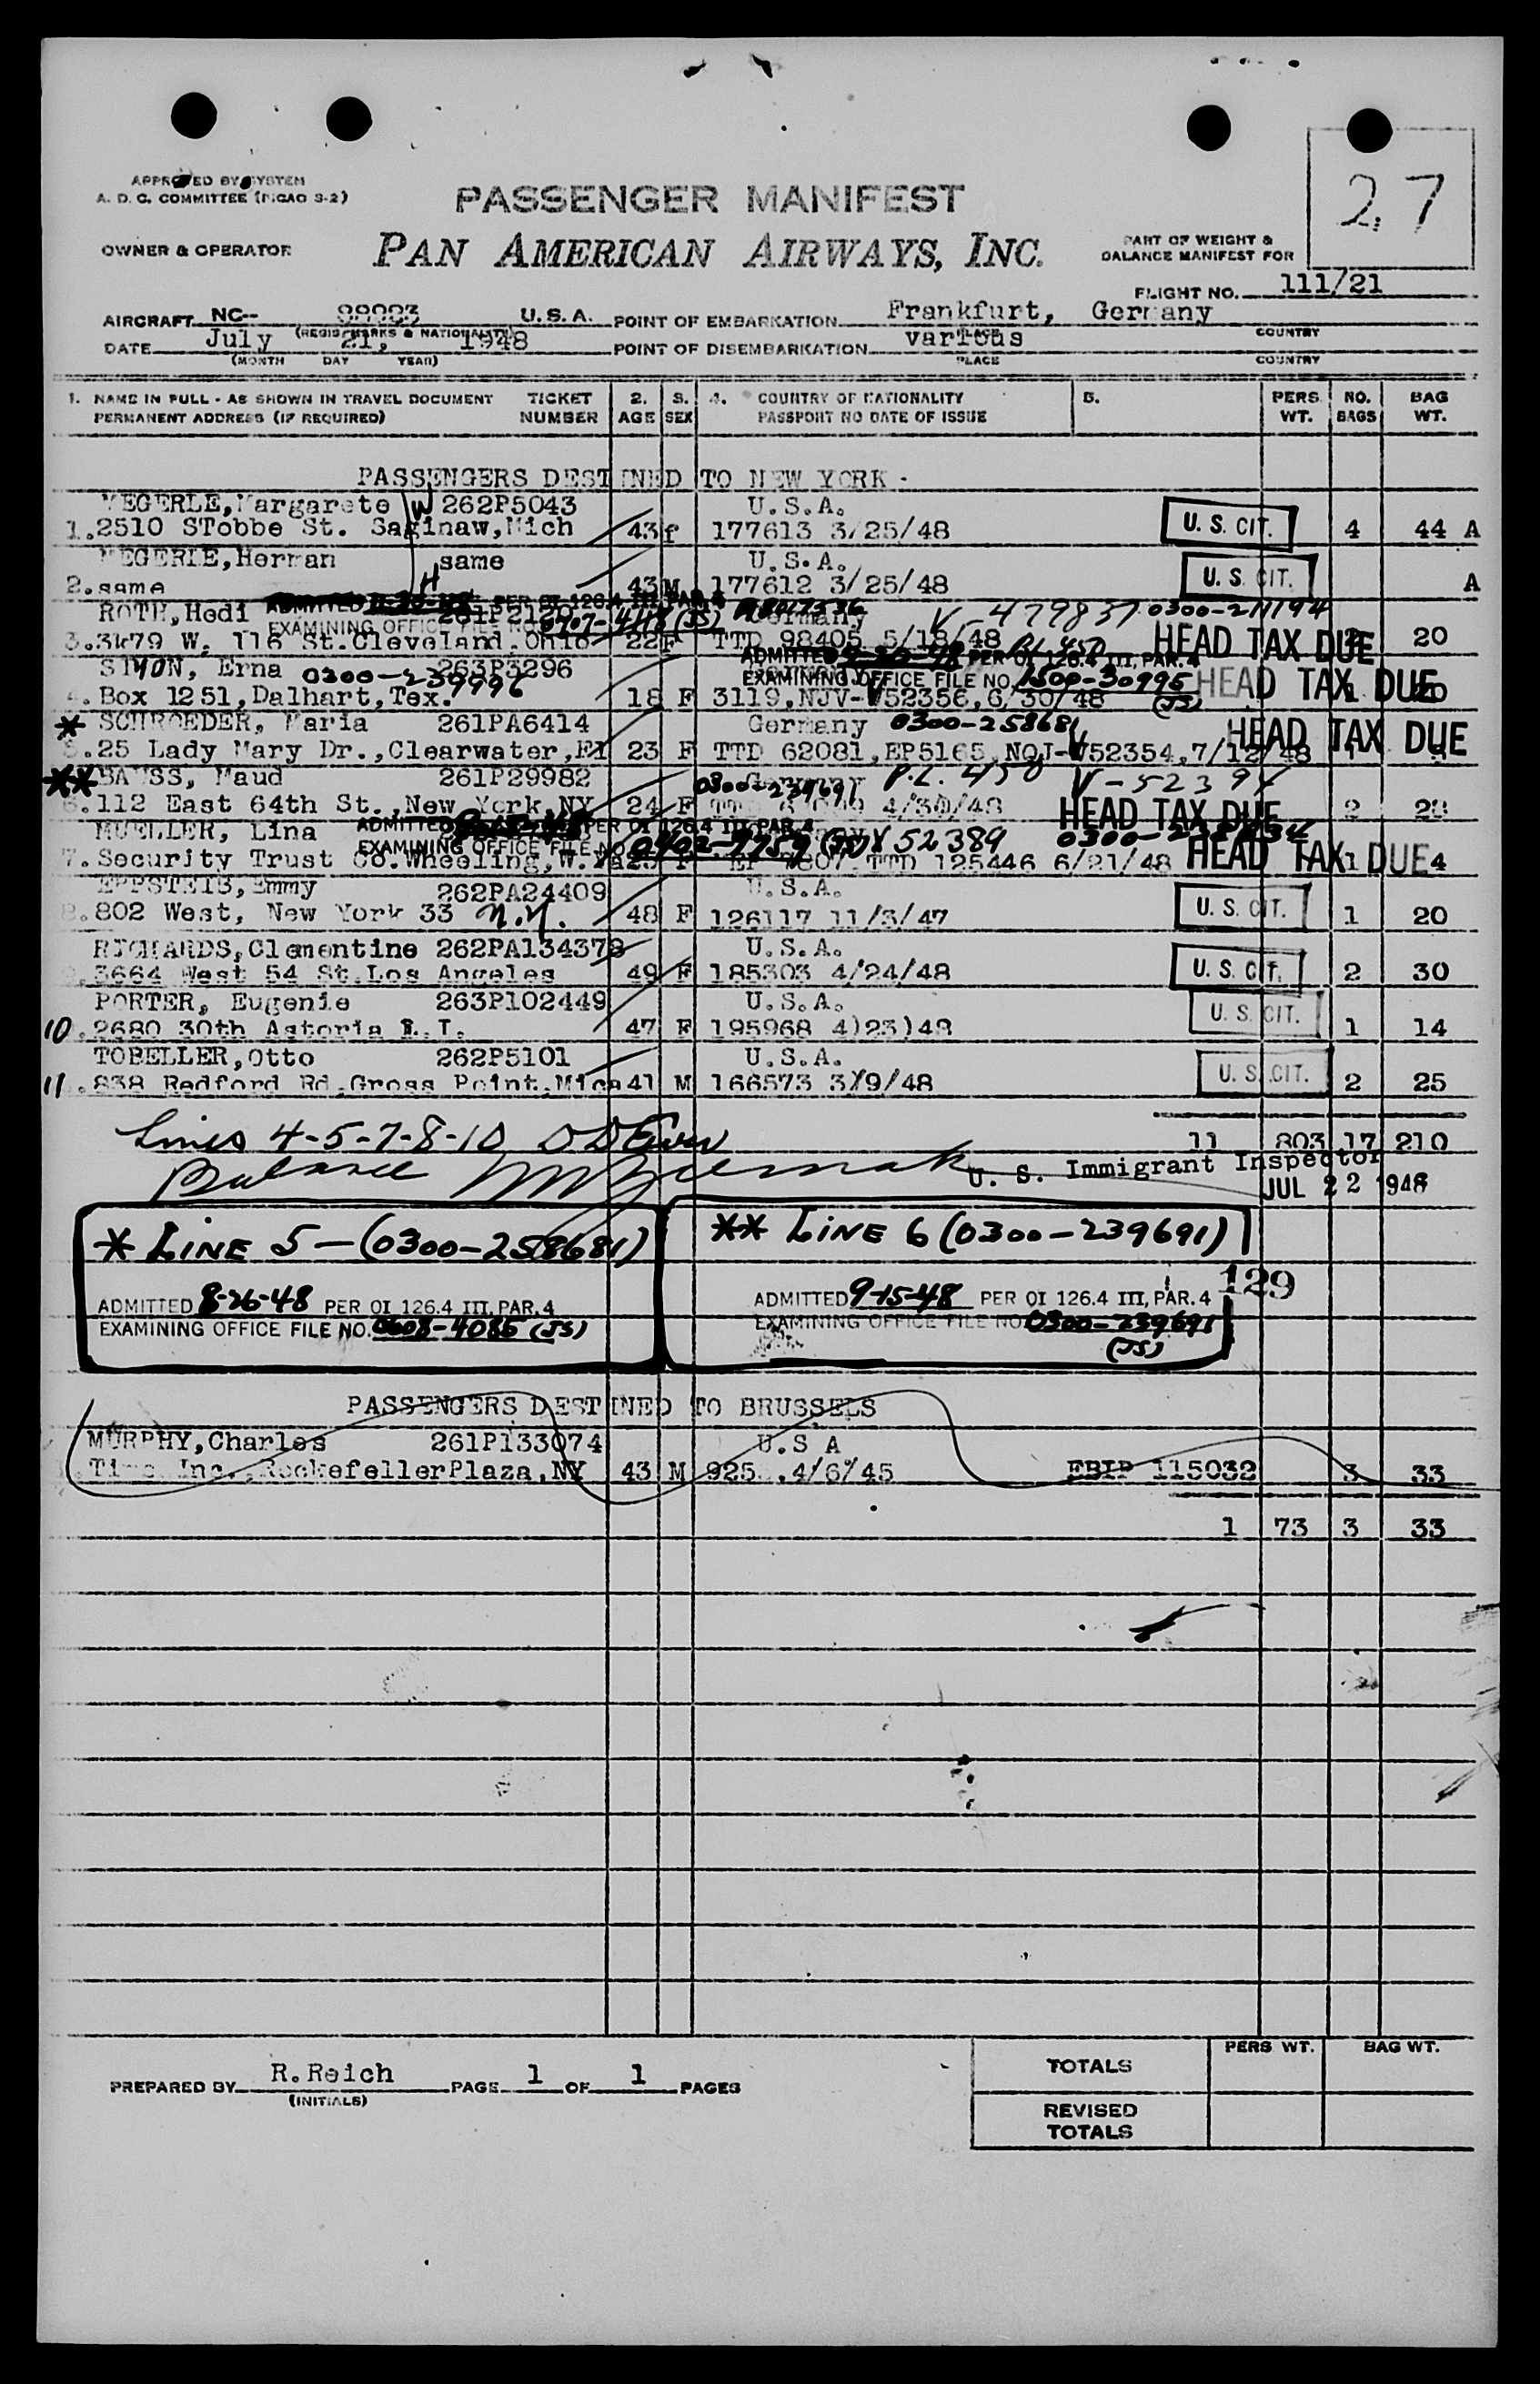 APPROVED BY SYSTEM
A. D. C. COMMITTEE (PICAO S-2)
27
PASSENGER MANIFEST
OWNER & OPERATOR
PAN AMERICAN AIRWAYS, INC.
PART OF WEIGHT &
BALANCE MANIFEST FOR
FLIGHT NO. 111/21
AIRCRAFT NC-- 88983 U.S.A. POINT OF EMBARKATION Frankfurt, Germany
(REGIS. MARKS & NATIONALITY) PLACE COUNTRY
DATE July 21, 1948 POINT OF DISEMBARKATION various
(MONTH DAY YEAR) PLACE COUNTRY
1. NAME IN FULL - AS SHOWN IN TRAVEL DOCUMENT TICKET 2. 3. 4. COUNTRY OF NATIONALITY 5. PERS. NO. BAG
PERMANENT ADDRESS (IF REQUIRED) NUMBER AGE SEX PASSPORT NO DATE OF ISSUE WT. BAGS WT.
PASSENGERS DESTINED TO NEW YORK -
MEGERLE, Margarete W 262P5043 U.S.A.
1. 2510 STobbe St. Saginaw, Mich 43 f 177613 3/25/48 U. S. CIT. 4 44 A
MEGERLE, Herman same U.S.A.
2. same H 43 M 177612 3/25/48 U. S. CIT. A
ROTH, Hedi ADMITTED PER OI 126.4 III, PAR. 4 Germany V-479837 0300-211194
EXAMINING OFFICE FILE NO. 0707-4118 (JS)
3. 3479 W. 116 St. Cleveland, Ohio 22 F TTD 98405 5/18/48 PL 450 HEAD TAX DUE 20
SIMON, Erna 0300-239996 263P3296 ADMITTED PER OI 126.4 III, PAR. 4
EXAMINING OFFICE FILE NO. 1500-30995 (JS) HEAD TAX DUE
4. Box 1251, Dalhart, Tex. 18 F 3119, NJV-V52356, 6/30/48 1 20
* SCHROEDER, Maria 261PA6414 Germany 0300-258681 HEAD TAX DUE
5. 25 Lady Mary Dr., Clearwater, Fl 23 F TTD 62081, EP5165, NQJ-V52354, 7/12/48 1
** BAUSS, Maud 261P29982 0300-239691 Germany P.L. 450 V-5239
6. 112 East 64th St., New York, NY 24 F 4/30/48 HEAD TAX DUE 2 28
MUELLER, Lina ADMITTED PER OI 126.4 III, PAR. 4
EXAMINING OFFICE FILE NO. 0402-7759 (JS) V 52389
7. Security Trust Co. Wheeling, W.Va F TTD 125446 6/21/48 HEAD TAX DUE 1 4
EPPSTEIG, Emmy 262PA24409 U.S.A.
8. 802 West, New York 33 N.Y. 48 F 126117 11/3/47 U. S. CIT. 1 20
RICHARDS, Clementine 262PA134378 U.S.A.
9. 3664 West 54 St. Los Angeles 49 F 185303 4/24/48 U. S. CIT. 2 30
PORTER, Eugenie 263P102449 U.S.A.
10. 2680 30th Astoria L.I. 47 F 195968 4)23)48 U. S. CIT. 1 14
TOBELLER, Otto 262P5101 U.S.A.
11. 838 Bedford Rd, Gross Point, Mich 41 M 166573 3/9/48 U. S. CIT. 2 25
Lines 4-5-7-8-10
11 803 17 210
Balance
U. S. Immigrant Inspector
JUL 22 1948
* LINE 5-(0300-258681)
ADMITTED 8-26-48 PER OI 126.4 III, PAR. 4
EXAMINING OFFICE FILE NO. 0608-4085 (JS)
** LINE 6 (0300-239691)
129
ADMITTED 9-15-48 PER OI 126.4 III, PAR. 4
EXAMINING OFFICE FILE NO. 0300-239691
(JS)
PASSENGERS DESTINED TO BRUSSELS
MURPHY, Charles 261P133074 U.S A
Time Inc., RockefellerPlaza, NY 43 M 925 , 4/6/45 EBIP 115032 3 33
1 73 3 33
PREPARED BY R. Reich PAGE 1 OF 1 PAGES
(INITIALS)
PERS WT. BAG WT.
TOTALS
REVISED
TOTALS